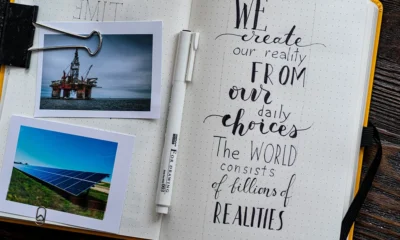 TIME
WE
create
our reality
FROM
our daily
choices
The WORLD
consists
of billions of
REALITIES
FOR DRAWING